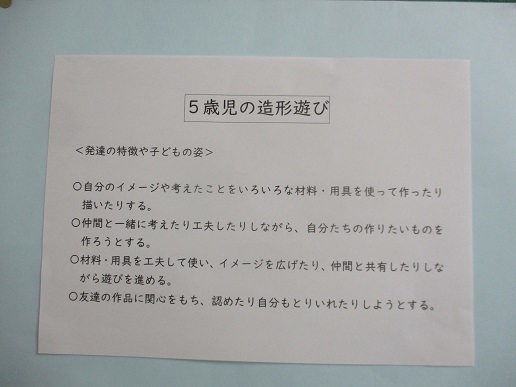 ５歳児の造形遊び
＜発達の特徴や子どもの姿＞
○自分のイメージや考えたことをいろいろな材料・用具を使って作ったり
描いたりする。
○仲間と一緒に考えたり工夫したりしながら、自分たちの作りたいものを
作ろうとする。
○材料・用具を工夫して使い、イメージを広げたり、仲間と共有したりしな
がら遊びを進める。
○友達の作品に関心をもち、認めたり自分もとりいれたりしようとする。